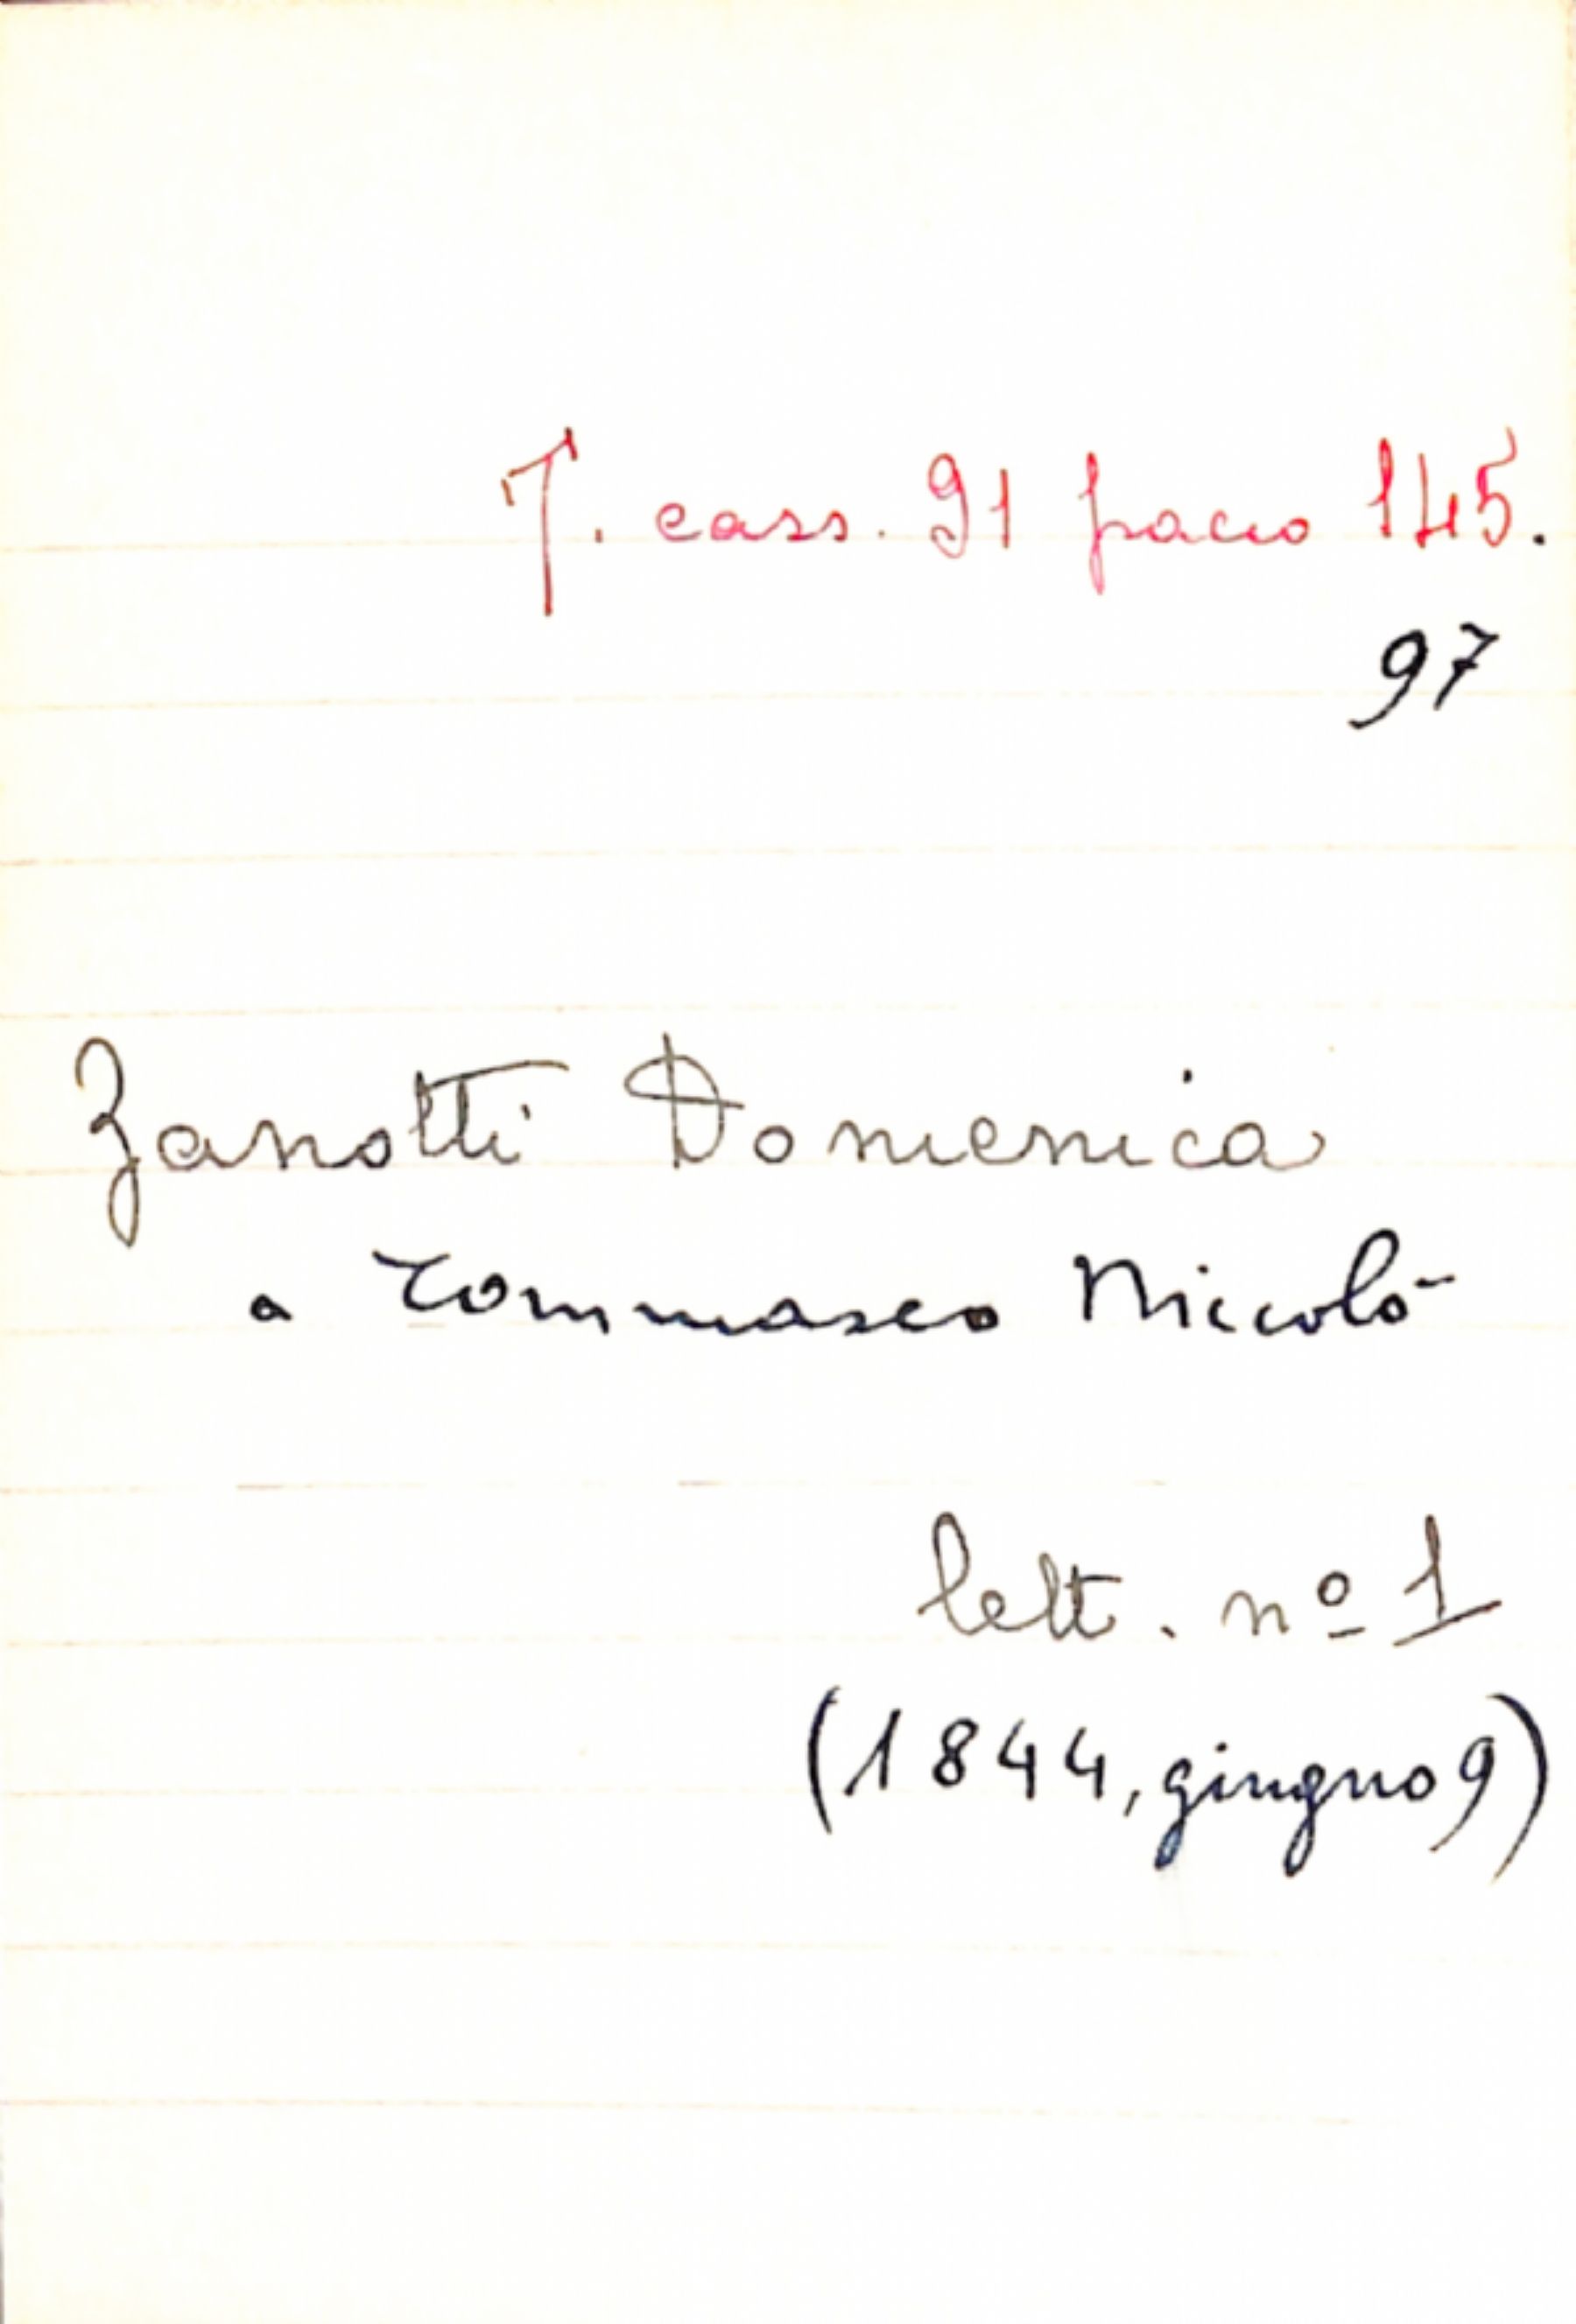 T. cass. 91 pacco 145.
97
Zanotti Domenica
a Tommaseo Niccolò
lett. nº 1
(1844, giugno 9)